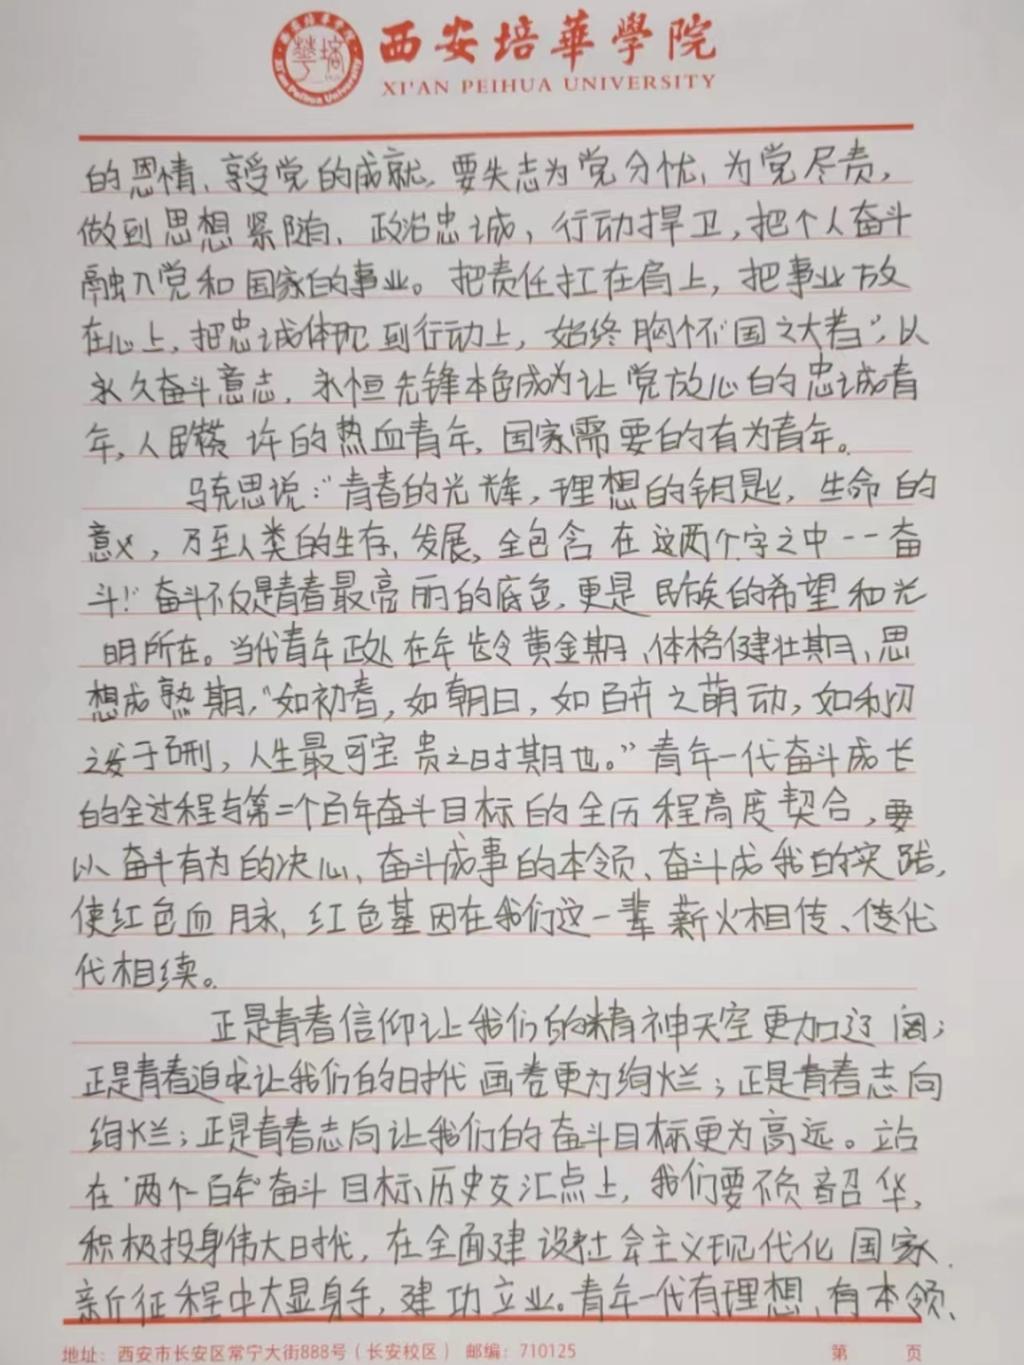 西安培華學院
XI'AN PEIHUA UNIVERSITY
的恩情、享受党的成就,要失志为党分忧、为党尽责,
做到思想紧随、政治忠诚,行动捍卫,把个人奋斗
融入党和国家的事业。把责任扛在肩上,把事业放
在心上,把忠诚体现到行动上,始终胸怀“国之大者”,以
永久奋斗意志,永恒先锋本色成为让党放心的忠诚青
年,人民赞许的热血青年,国家需要的有为青年。
马克思说:“青春的光辉,理想的钥匙,生命的
意义,乃至人类的生存、发展,全包含在这两个字之中--奋
斗!”奋斗不仅是青春最亮丽的底色,更是民族的希望和光
明所在。当代青年正处在年龄黄金期、体格健壮期、思
想成熟期,“如初春,如朝日,如百卉之萌动,如利刃
之发于硎,人生最可宝贵之时期也。”青年一代奋斗成长
的全过程与第二个百年奋斗目标的全历程高度契合,要
以奋斗有为的决心、奋斗成事的本领、奋斗成我的实践,
使红色血脉、红色基因在我们这一辈薪火相传、传代
代相续。
正是青春信仰让我们的精神天空更加辽阔;
正是青春追求让我们的时代画卷更为绚烂;正是青春志向
绚烂;正是青春志向让我们的奋斗目标更为高远。站
在“两个一百年”奋斗目标历史交汇点上,我们要不负韶华,
积极投身伟大时代,在全面建设社会主义现代化国家
新征程中大显身手,建功立业。青年一代有理想、有本领、
地址:西安市长安区常宁大街888号(长安校区) 邮编:710125 第 页